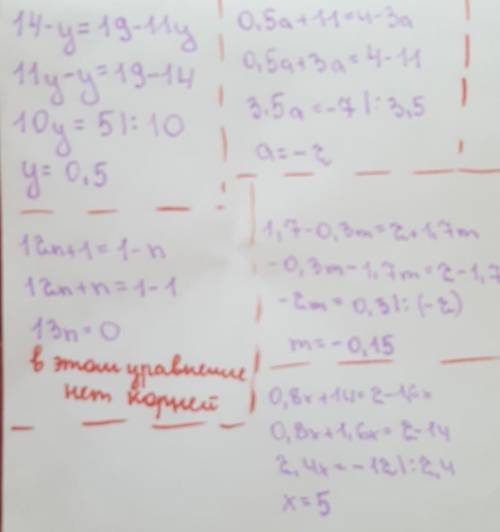 14-y=19-11y
11y-y=19-14
10y=5|:10
y=0,5
0,5a+11=4-3a
0,5a+3a=4-11
3,5a=-7|:3,5
a=-2
12n+1=1-n
12n+n=1-1
13n=0
в этом уравнение
нет корней
1,7-0,3m=2+1,7m
-0,3m-1,7m=2-1,7
-2m=0,3|:(-2)
m=-0,15
0,8x+14=2-1,6x
0,8x+1,6x=2-14
2,4x=-12|:2,4
x=5